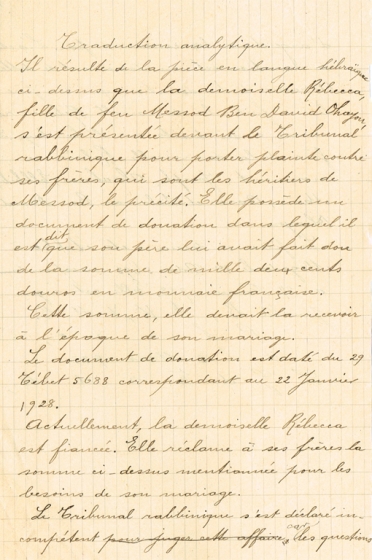 Traduction analytique.
Il résulte de la pièce en langue hébraïque
ci-dessus que la demoiselle Rébecca,
fille de feu Messod Ben David Ohayon,
s'est présentée devant le Tribunal
rabbinique pour porter plainte contre
ses frères, qui sont les héritiers de
Messod, le précité. Elle possède un
document de donation dans lequel il
est dit que son père lui avait fait don
de la somme de mille deux cents
douros en monnaie française.
Cette somme, elle devait la recevoir
à l'époque de son mariage.
Le document de donation est daté du 29
Tébet 5638 correspondant au 22 Janvier
1928.
Actuellement, la demoiselle Rébecca
est fiancée. Elle réclame à ses frères la
somme ci-dessus mentionnée pour les
besoins de son mariage.
Le Tribunal rabbinique s'est déclaré in-
compétent pour juger cette affaire, car des questions